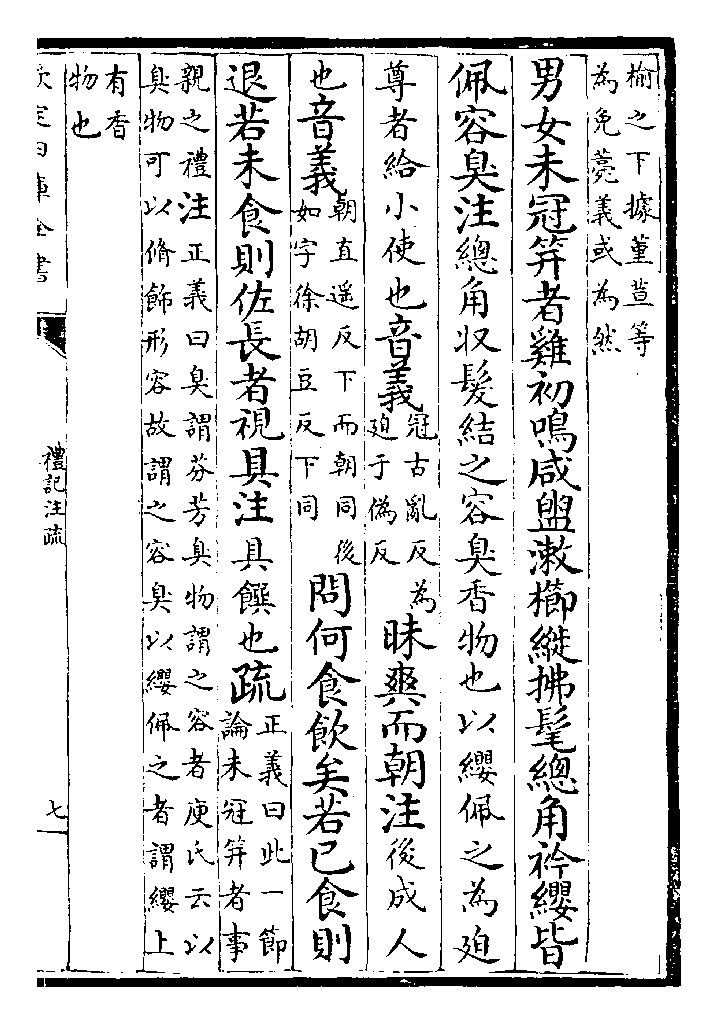 榆之下據堇荁等
為免薧義或為然
男女未冠笄者雞初鳴咸盥漱櫛縰拂髦總角衿纓皆
佩容臭注總角収髮結之容臭香物也以纓佩之為廹
尊者給小使也音義冠古亂反為
廹于偽反昧爽而朝注後成人
也音義朝直遥反下而朝同後
如字徐胡豆反下同問何食飲矣若已食則
退若未食則佐長者視具注具饌也疏正義曰此一節
論未冠笄者事
親之禮注正義曰臭謂芬芳臭物謂之容者庾氏云以
臭物可以脩飾形容故謂之容臭以纓佩之者謂纓上
有香
物也
欽定四庫全書
禮記注疏
七